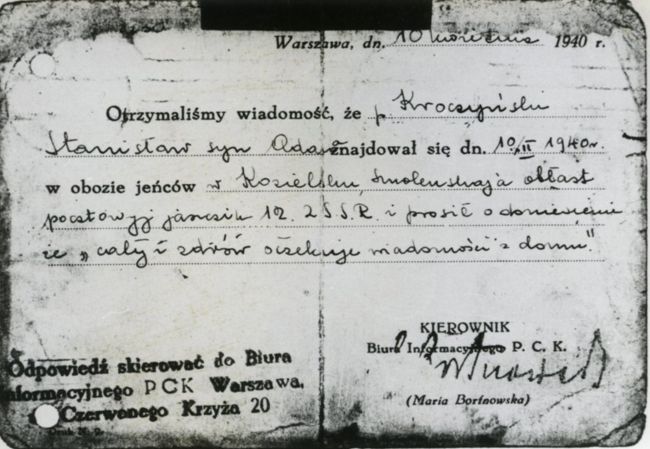 Warszawa, dn. 10 kwietnia 1940 r.
Otrzymaliśmy wiadomość, że p. Kroczyński
Stanisław syn Adama znajdował się dn. 10/II 1940 r.
w obozie jeńców w Kozielsku, Smolenskaja obłast
pocztowyj jaszczik 12. ZSSR. i prosił o doniesienie
że „cały i zdrów oczekuje wiadomości z domu”
KIEROWNIK
Biura Informacyjnego P. C. K.
(Maria Bortnowska)
Odpowiedź skierować do Biura
Informacyjnego PCK Warszawa,
Czerwonego Krzyża 20
Druk N. 2.